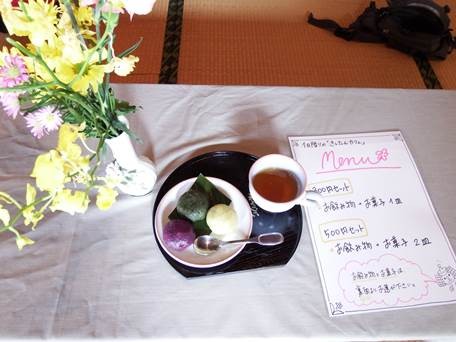 1日限りの「きったんカフェ」
Menu
300円セット
お飲み物・お菓子 1皿
500円セット
お飲み物・お菓子 2皿
お飲み物とお菓子は
お選び下さい。